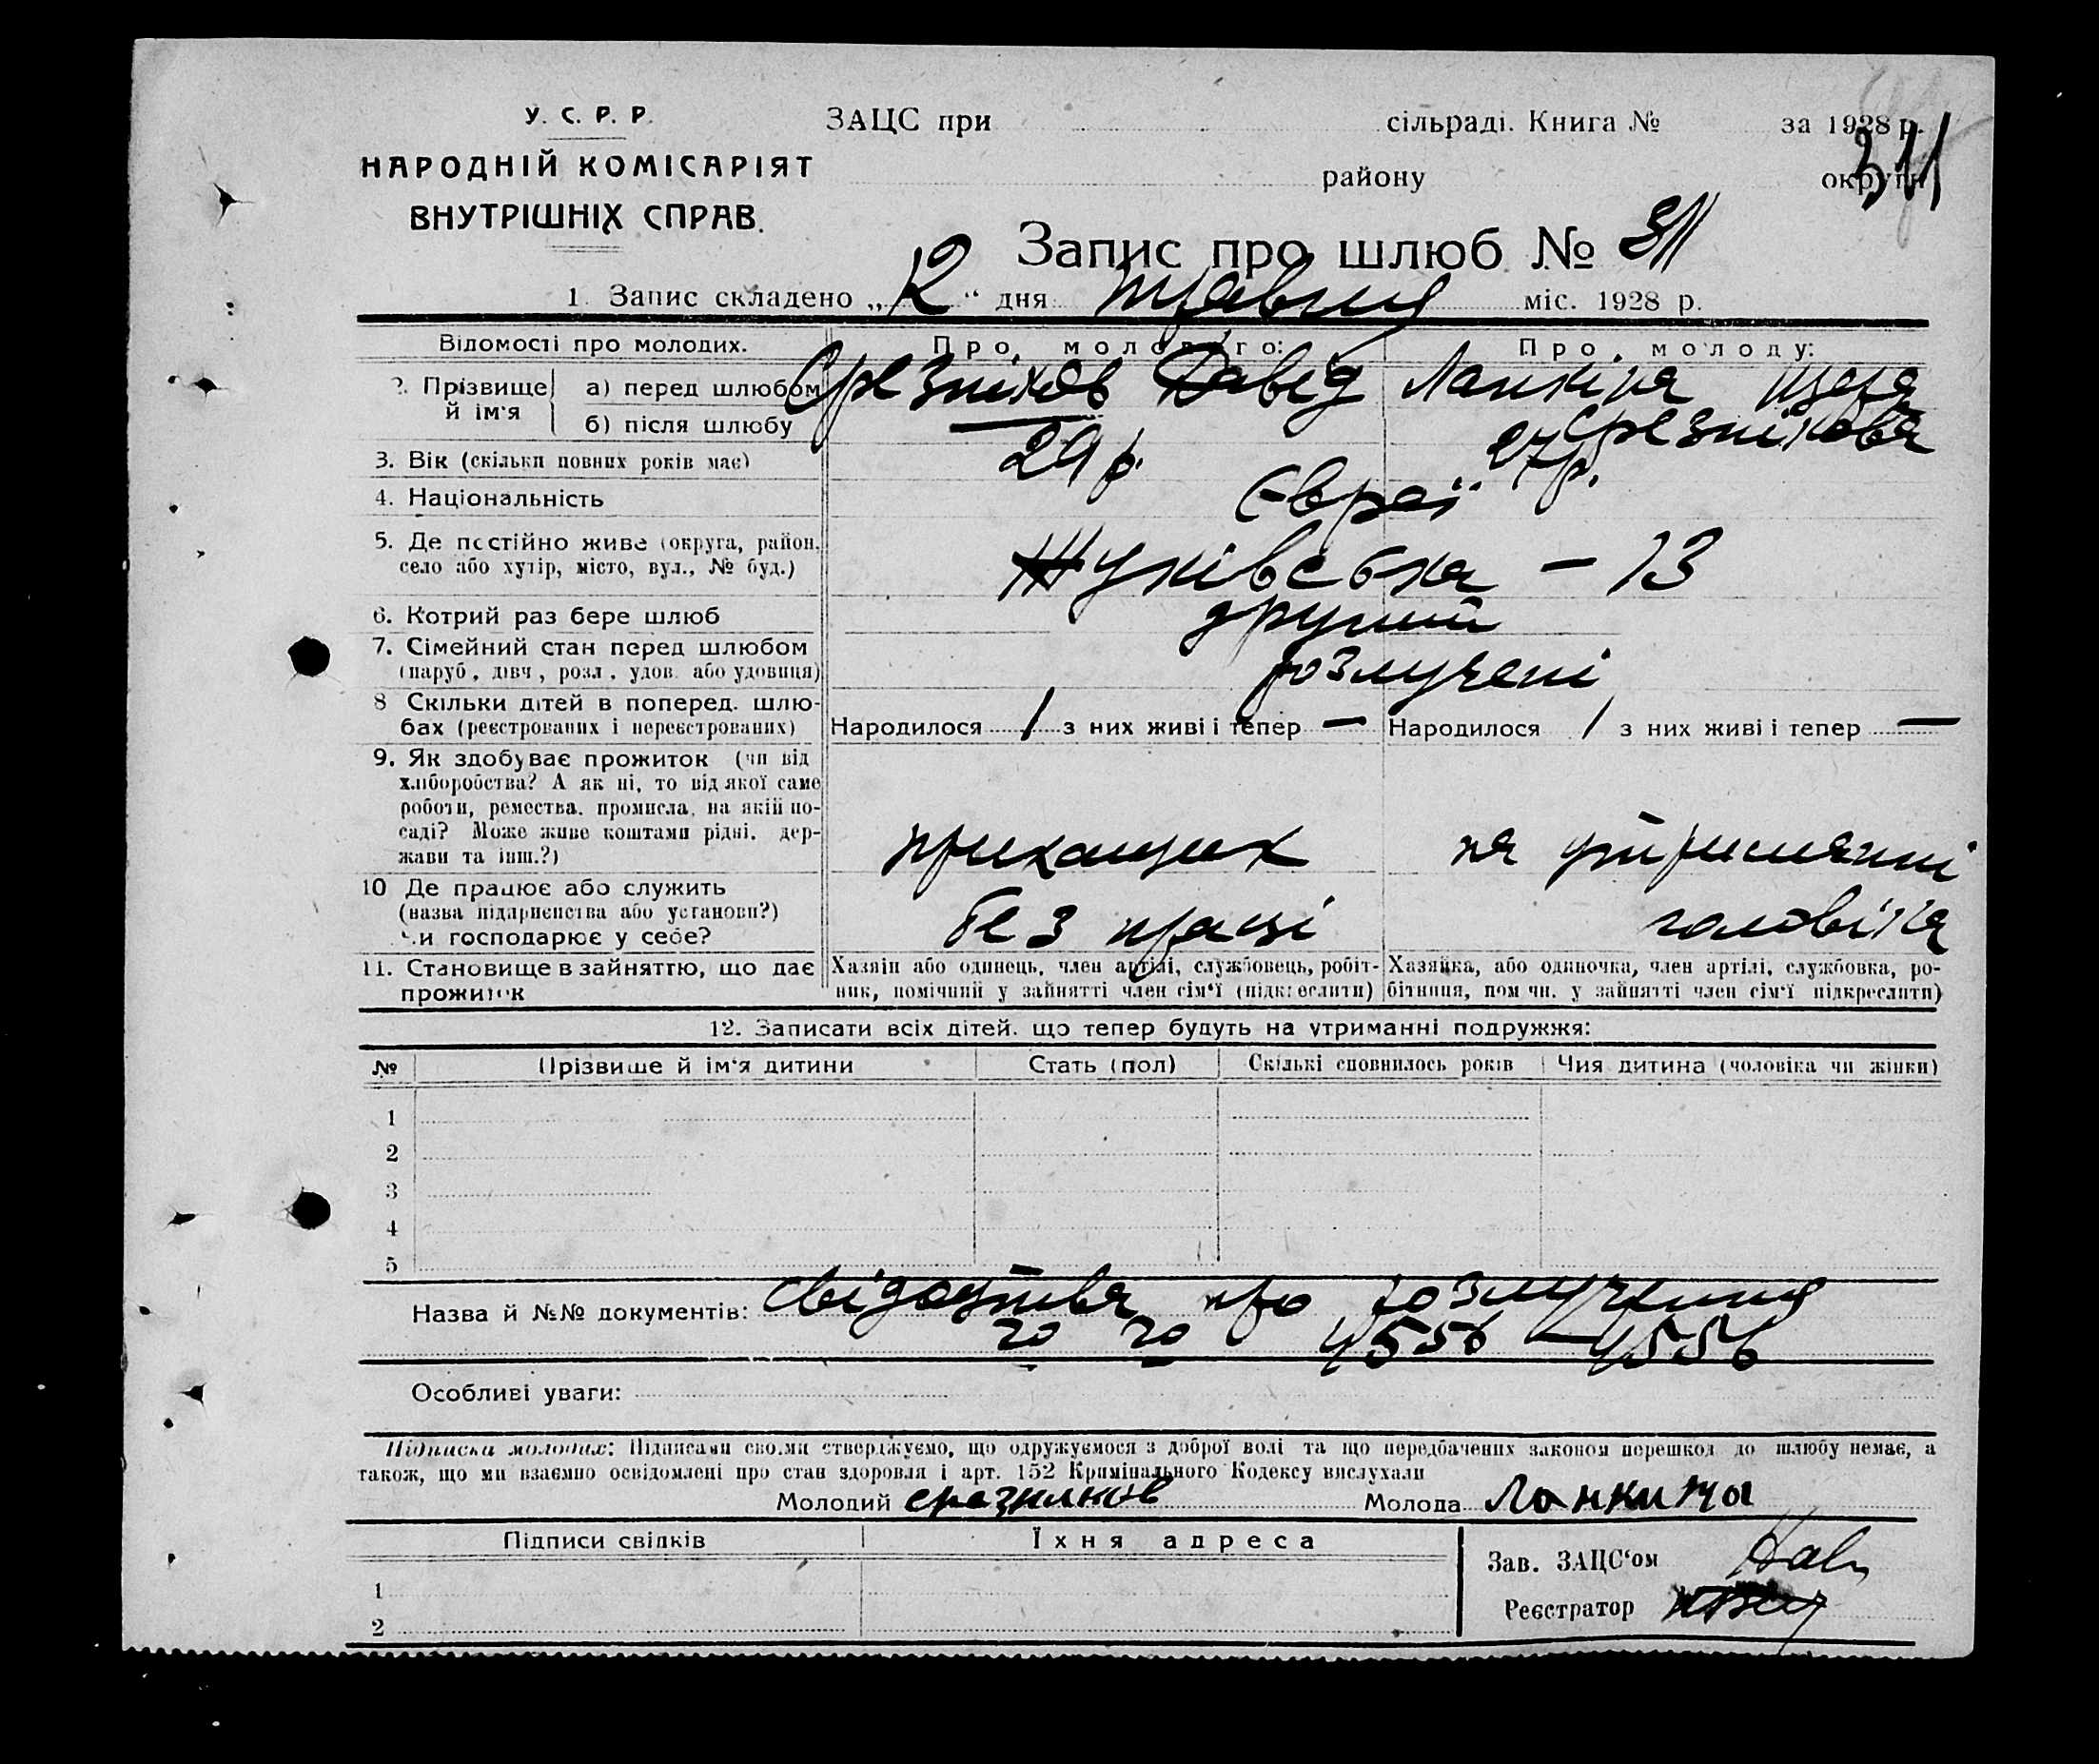 У. С. Р. Р.
НАРОДНІЙ КОМІСАРІЯТ
ВНУТРІШНІХ СПРАВ.
ЗАЦС при сільраді. Книга № за 1928 р.
району округи
311
Запис про шлюб № 311
1. Запис складено „ “ дня травня міс. 1928 р.
Відомості про молодих. Про молодого: Про молоду:
2. Прізвище й ім'я
а) перед шлюбом Срезніков Давід Ланкіна
б) після шлюбу Срезнікова
3. Вік (скільки повних років має) 29 р. 27 р.
4. Національність Євреї
5. Де постійно живе (округа, район,
село або хутір, місто, вул., № буд.) Жуківська – 13
6. Котрий раз бере шлюб другий
7. Сімейний стан перед шлюбом
(паруб., дівч., розл., удов. або удовиця) розлучені
8 Скільки дітей в поперед. шлю-
бах (реєстрованих і нереєстрованих) Народилося 1 з них живі і тепер — Народилося 1 з них живі і тепер —
9. Як здобуває прожиток (чи від
хліборобства? А як ні, то від якої саме
роботи, ремества, промисла, на якій по-
саді? Може живе коштами рідні, дер-
жави та інш.?) прикащик на утриманні
10 Де працює або служить
(назва підприємства або установи?)
Чи господарює у себе? без праці чоловіка
11. Становище в зайняттю, що дає
прожиток
Хазяїн або одинець, член артілі, службовець, робіт-
ник, помічний у зайнятті член сім'ї (підкреслити)
Хазяйка, або одиночка, член артілі, службовка, ро-
бітниця, помічн. у зайнятті член сім'ї підкреслити)
12. Записати всіх дітей, що тепер будуть на утриманні подружжя:
№ Прізвище й ім'я дитини Стать (пол) Скількі сповнилось років Чия дитина (чоловіка чи жінки)
1
2
3
4
5
Назва й №№ документів: свідоцтва про розлучення
4556 – 4556
Особливі уваги:
Підписка молодих: Підписами своїми стверджуємо, що одружуємося з доброї волі та що передбачених законом перешкод до шлюбу немає, а
також, що ми взаємно освідомлені про стан здоровля і арт. 152 Кримінального Кодексу вислухали
Молодий Срезников Молода Ланкины
Підписи свідків Їхня адреса
1
2
Зав. ЗАЦС'ом
Реєстратор